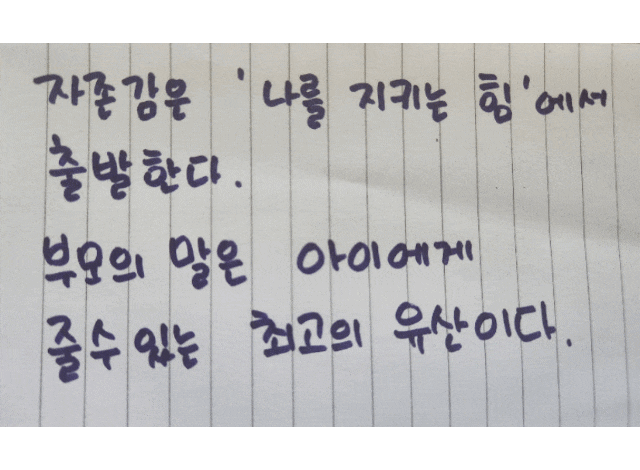 자존감은 '나를 지키는 힘'에서
출발한다.
부모의 말은 아이에게
줄수 있는 최고의 유산이다.